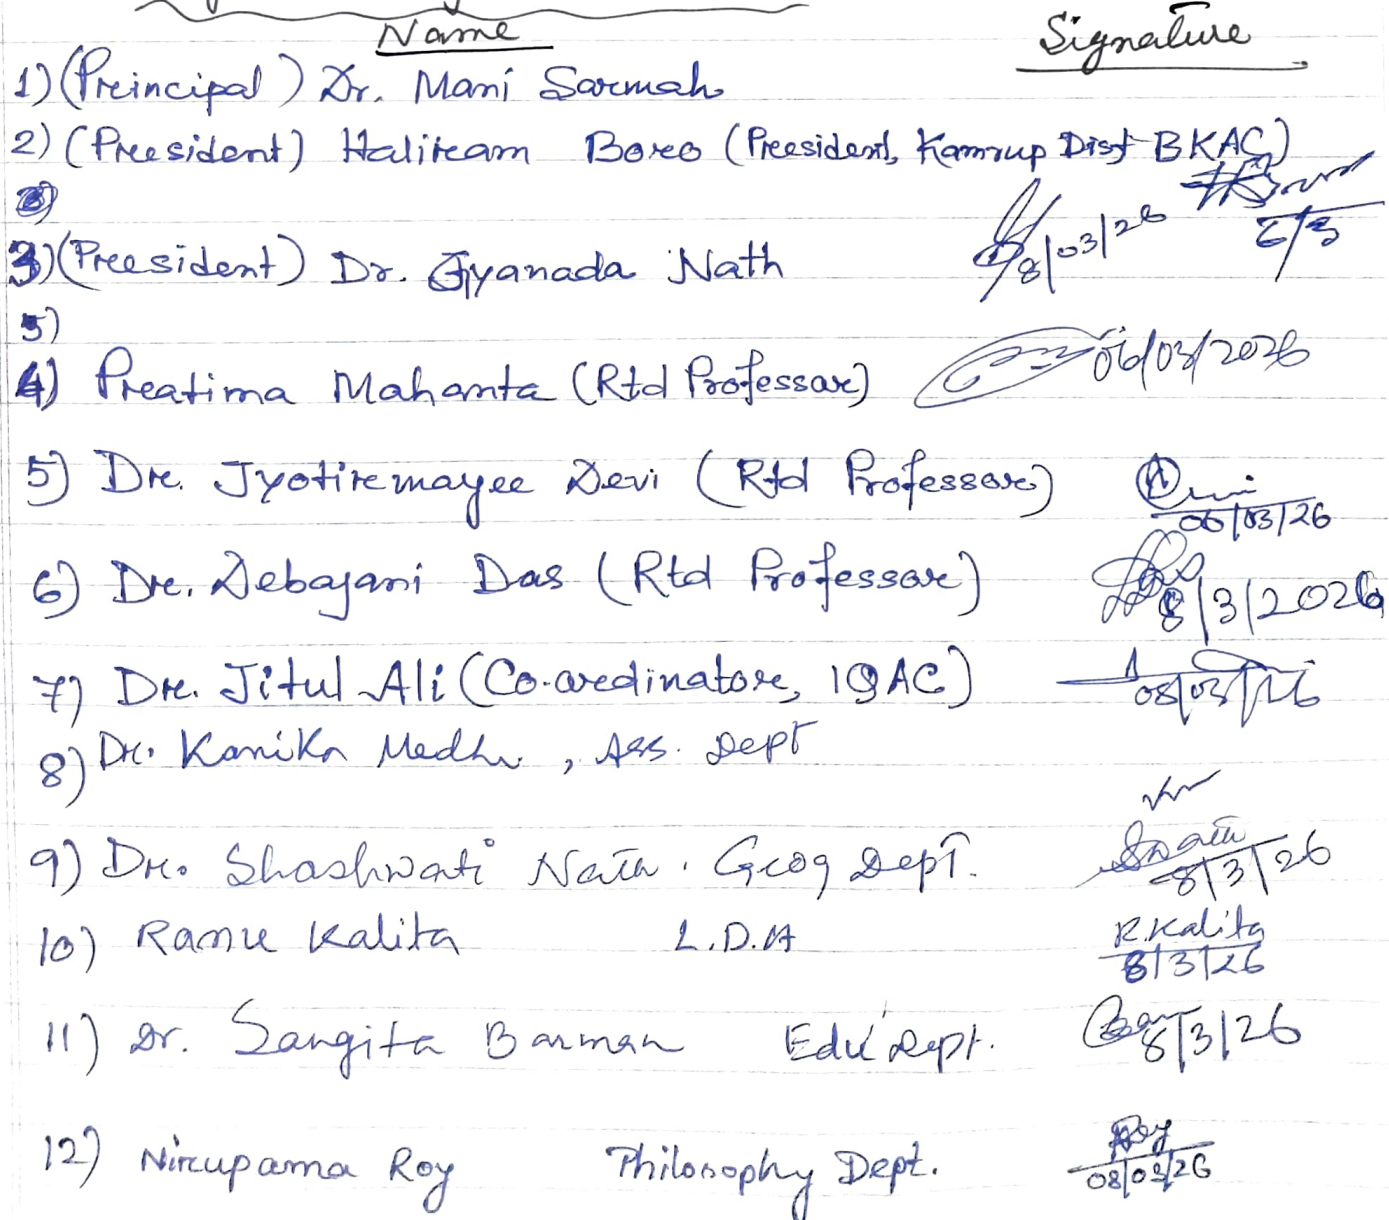 Name Signature
1) (Preincipal) Dr. Mani Sarmah
2) (Preesident) Haliream Boreo (Preesident, Kamrup Dist BKAC)
6/3
8/03/26
3) (Preesident) Dr. Gyanada Nath
5)
4) Preatima Mahanta (Rtd Professar) 06/03/2026
5) Dre. Jyotiremayee Devi (Rtd Professore) Devi
06/03/26
6) Dre. Debajani Das (Rtd Professore) 8/3/2026
7) Dre. Jitul Ali (Co-oredinatore, IQAC) 08/03/26
8) Dr. Kanika Medhi, Ass. Dept
9) Dr. Shashwati Nath. Geog Dept. SNath
8/3/26
10) Ramu Kalita L.D.A R.Kalita
8/3/26
11) Dr. Sangita Barman Edu Dept. 8/3/26
12) Nirupama Roy Philosophy Dept. Roy
08/03/26